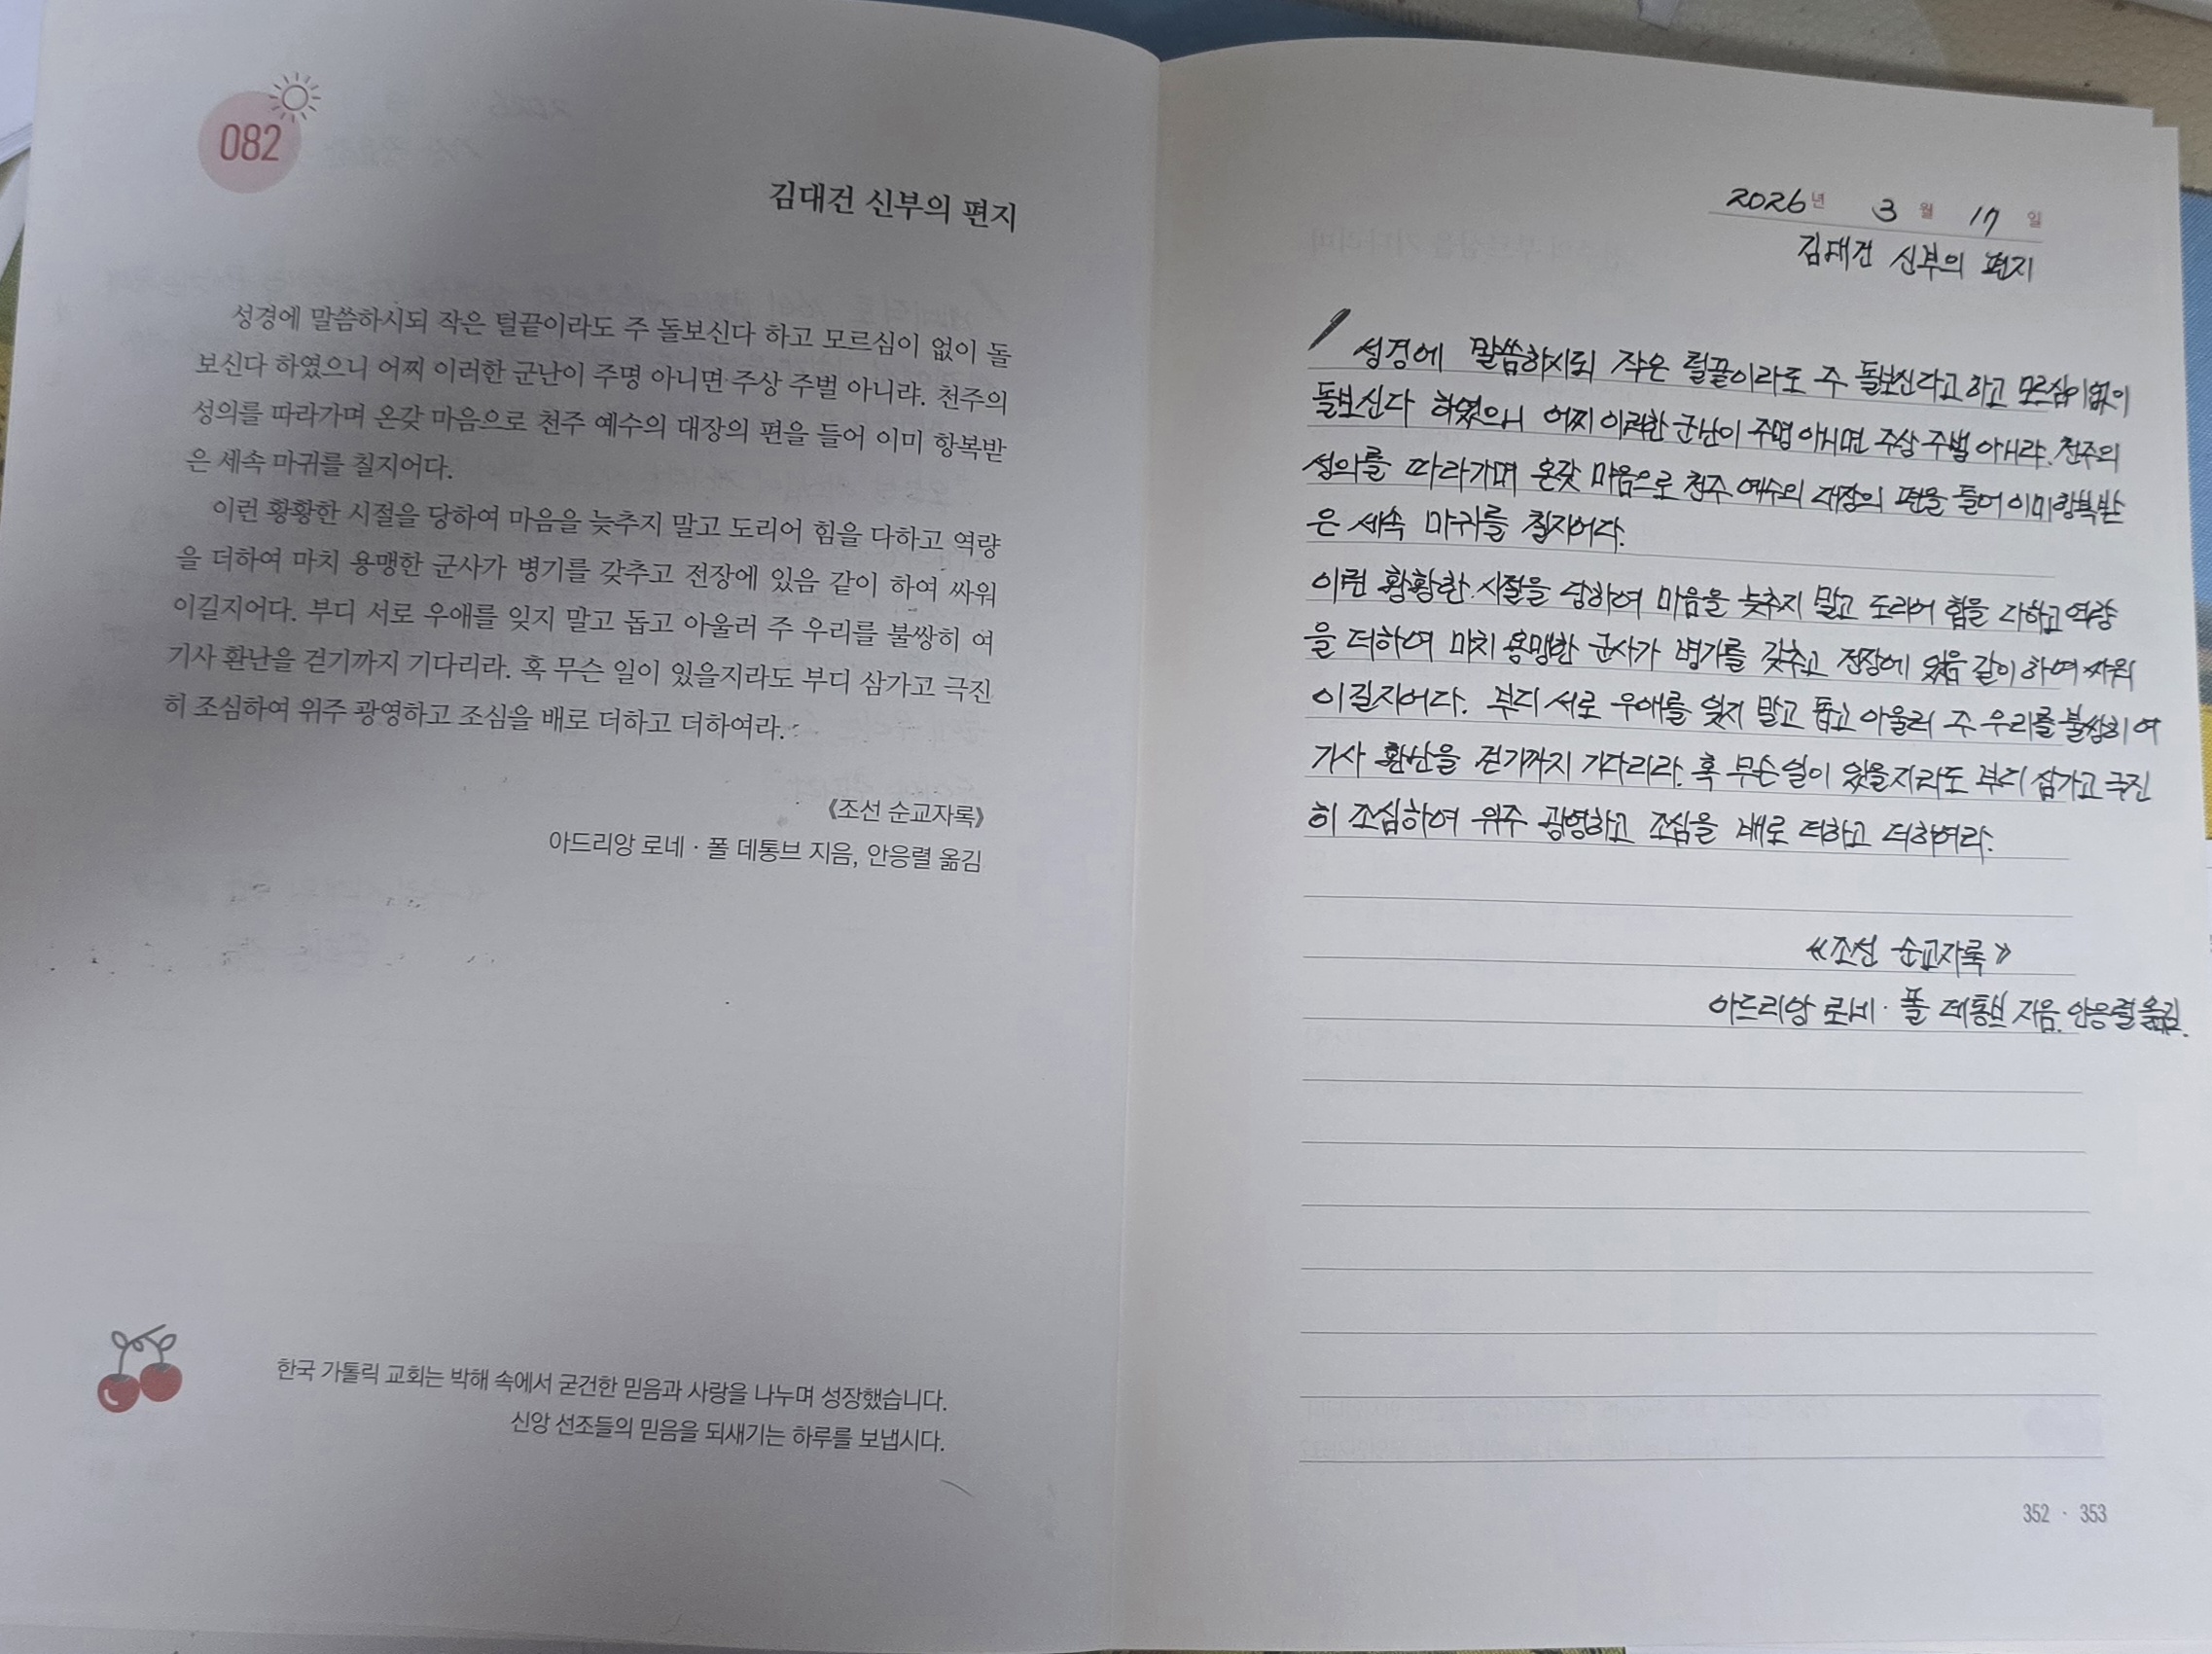 082
김대건 신부의 편지
성경에 말씀하시되 작은 털끝이라도 주 돌보신다 하고 모르심이 없이 돌
보신다 하였으니 어찌 이러한 군난이 주명 아니면 주상 주벌 아니랴. 천주의
성의를 따라가며 온갖 마음으로 천주 예수의 대장의 편을 들어 이미 항복받
은 세속 마귀를 칠지어다.
이런 황황한 시절을 당하여 마음을 늦추지 말고 도리어 힘을 다하고 역량
을 더하여 마치 용맹한 군사가 병기를 갖추고 전장에 있음 같이 하여 싸워
이길지어다. 부디 서로 우애를 잊지 말고 돕고 아울러 주 우리를 불쌍히 여
기사 환난을 걷기까지 기다리라. 혹 무슨 일이 있을지라도 부디 삼가고 극진
히 조심하여 위주 광영하고 조심을 배로 더하고 더하여라.
《조선 순교자록》
아드리앙 로네 · 폴 데통브 지음, 안응렬 옮김
한국 가톨릭 교회는 박해 속에서 굳건한 믿음과 사랑을 나누며 성장했습니다.
신앙 선조들의 믿음을 되새기는 하루를 보냅시다.
2026년 3월 17일
김대건 신부의 편지
성경에 말씀하시되 작은 털끝이라도 주 돌보신다고 하고 모르심이 없이
돌보신다 하였으니 어찌 이러한 군난이 주명 아니면 주상 주벌 아니랴. 천주의
성의를 따라가며 온갖 마음으로 천주 예수의 대장의 편을 들어 이미 항복받
은 세속 마귀를 칠지어다.
이런 황황한 시절을 당하여 마음을 늦추지 말고 도리어 힘을 다하고 역량
을 더하여 마치 용맹한 군사가 병기를 갖추고 전장에 있음 같이 하여 싸워
이길지어다. 부디 서로 우애를 잊지 말고 돕고 아울러 주 우리를 불쌍히 여
기사 환난을 걷기까지 기다리라. 혹 무슨 일이 있을지라도 부디 삼가고 극진
히 조심하여 위주 광영하고 조심을 배로 더하고 더하여라.
《조선 순교자록》
아드리앙 로네 · 폴 데통브 지음. 안응렬 옮김.
352 · 353